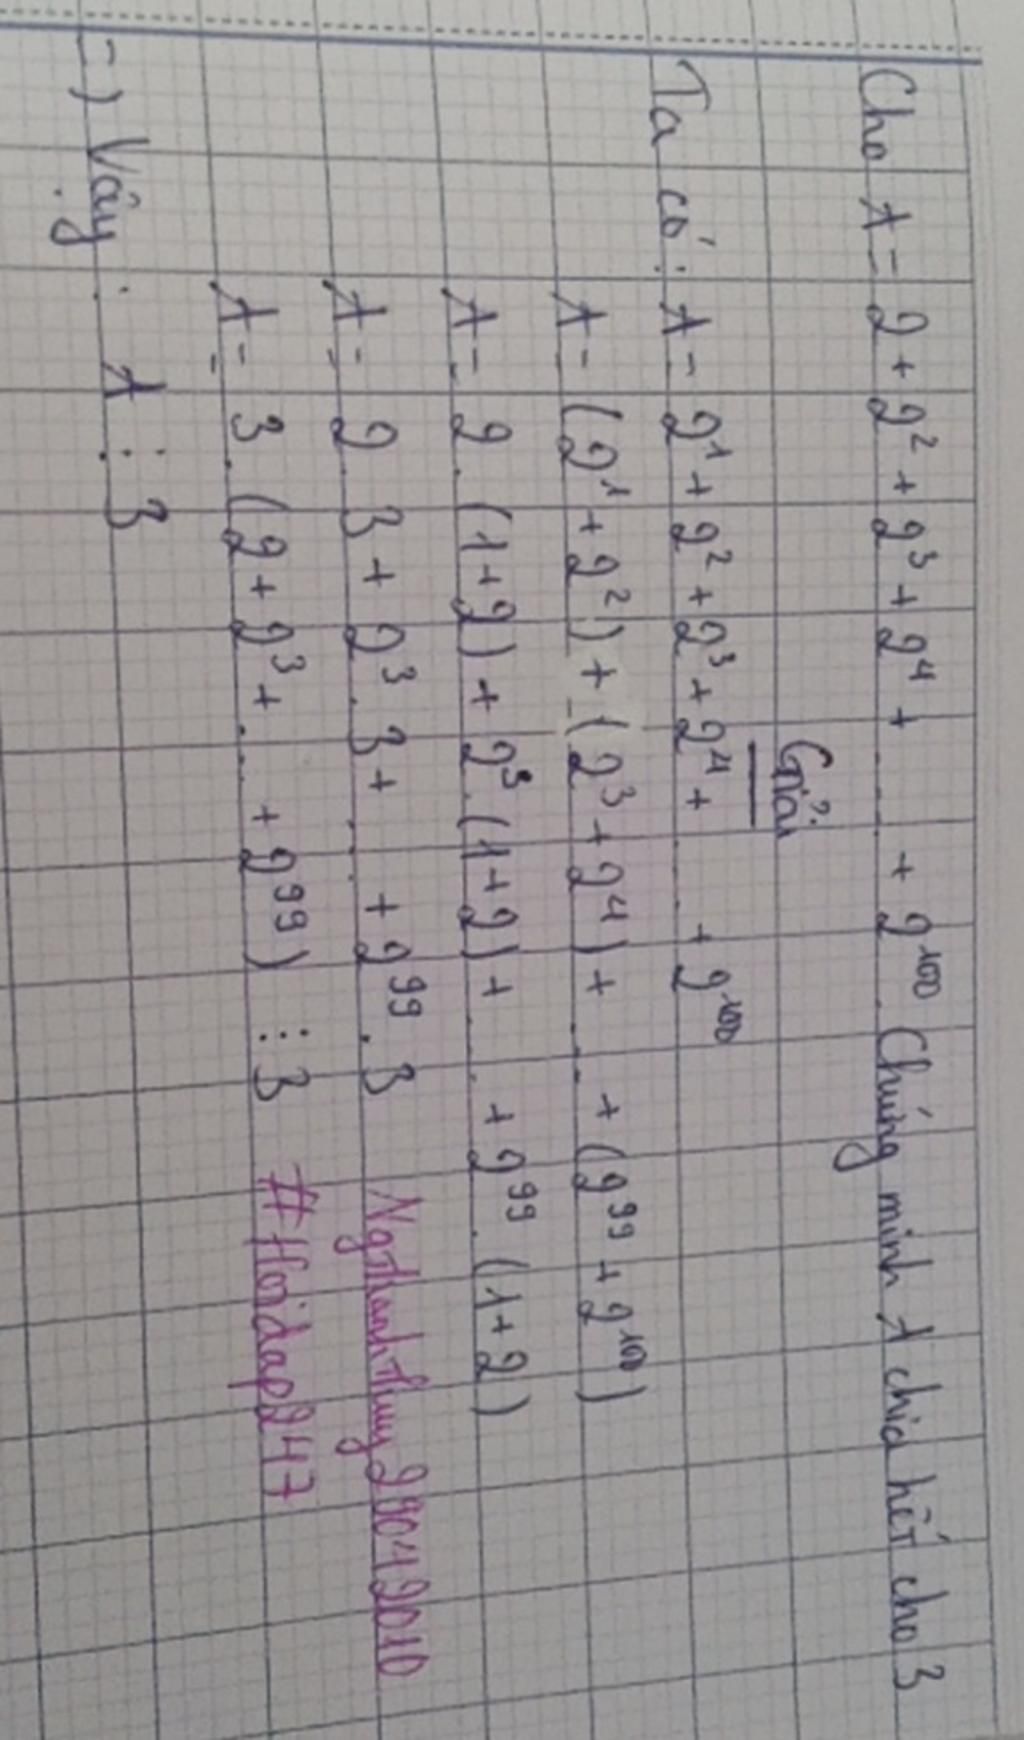 Cho A = 2 + 2² + 2³ + 2⁴ + ... + 2¹⁰⁰. Chứng minh A chia hết cho 3
Giải
Ta có: A = 2¹ + 2² + 2³ + 2⁴ + ... + 2¹⁰⁰
A = (2¹ + 2²) + (2³ + 2⁴) + ... + (2⁹⁹ + 2¹⁰⁰)
A = 2.(1+2) + 2³.(1+2) + ... + 2⁹⁹.(1+2)
A = 2.3 + 2³.3 + ... + 2⁹⁹.3
Ngthanhthuy29042010
A = 3.(2 + 2³ + ... + 2⁹⁹) ⋮ 3
#Hoidap247
=) Vậy: A ⋮ 3